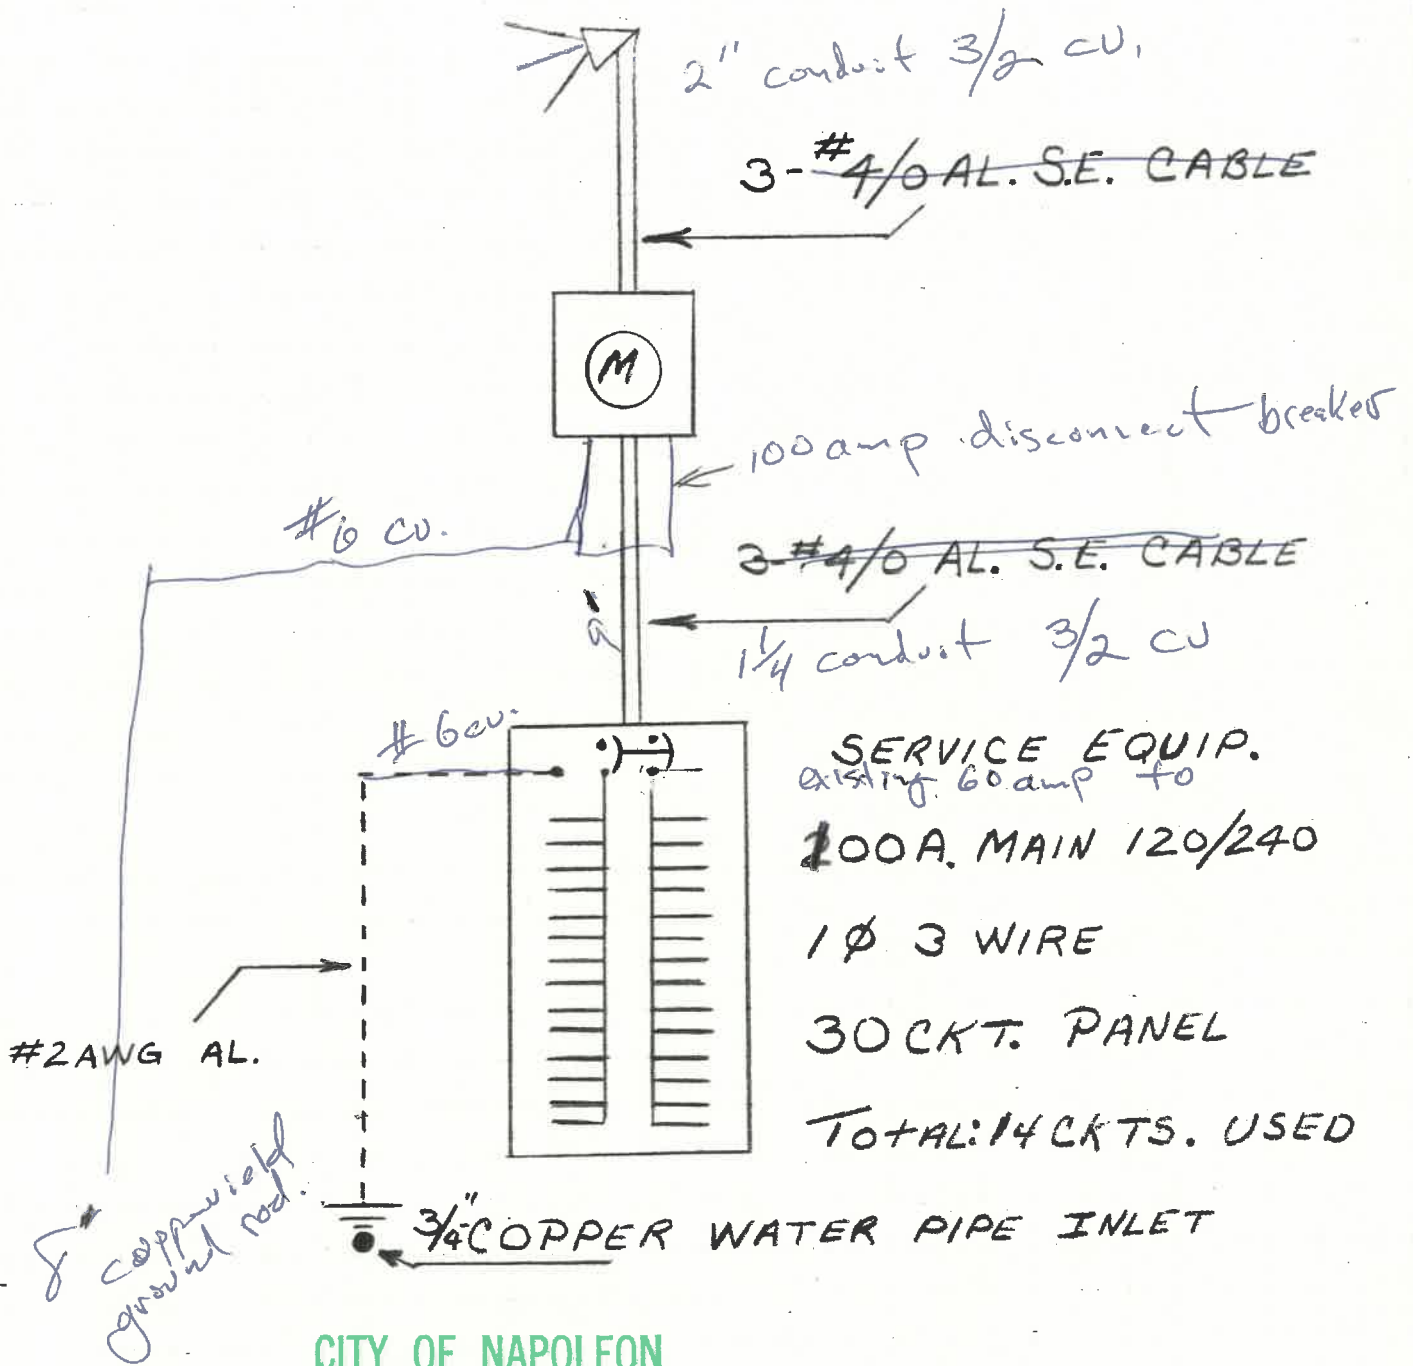 2" conduit 3/2 CU.
3-#4/0 AL. S.E. CABLE
M
100 amp disconnect breaker
#6 CU.
3-#4/0 AL. S.E. CABLE
1 1/4 conduit 3/2 CU
#6 cu.
SERVICE EQUIP.
existing 60 amp to
100A. MAIN 120/240
1Ø 3 WIRE
30 CKT. PANEL
#2 AWG AL.
TOTAL: 14 CKTS. USED
8'
ground rod.
3/4" COPPER WATER PIPE INLET
CITY OF NAPOLEON